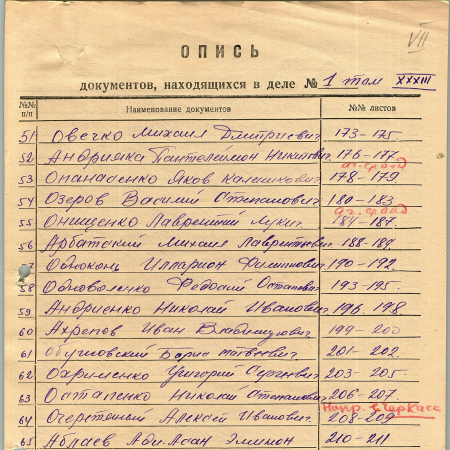 VII
ОПИСЬ
документов, находящихся в деле № 1 том XXXIII
№№ п/п Наименование документов №№ листов
51 Овечко Михаил Дмитриевич 173-175.
52 Андрияка Пантелеймон Никитович 176-177
53 Опанасенко Яков Калешкович 178-179
54 Озеров Василий Степанович 180-183
55 Онищенко Лаврентий Лукич 184-187.
56 Арбатский Михаил Лаврентьевич 188-189.
7 Одноконь Илларион Филиппович 190-192.
58 Одноволенко Федосий Остапович 193-195.
59 Андриенко Николай Иванович 196. 198
60 Ахрепов Иван Владимирович 199-200
61 Борис Матвеевич 201-202.
62 Охрименко Григорий Сергеевич 203-205.
63 Остапенко Николай Степанович 206-207.
Напр. Черкасс
64 Очеретяный Алексей Иванович 208-209
65 Аблаев 210-211